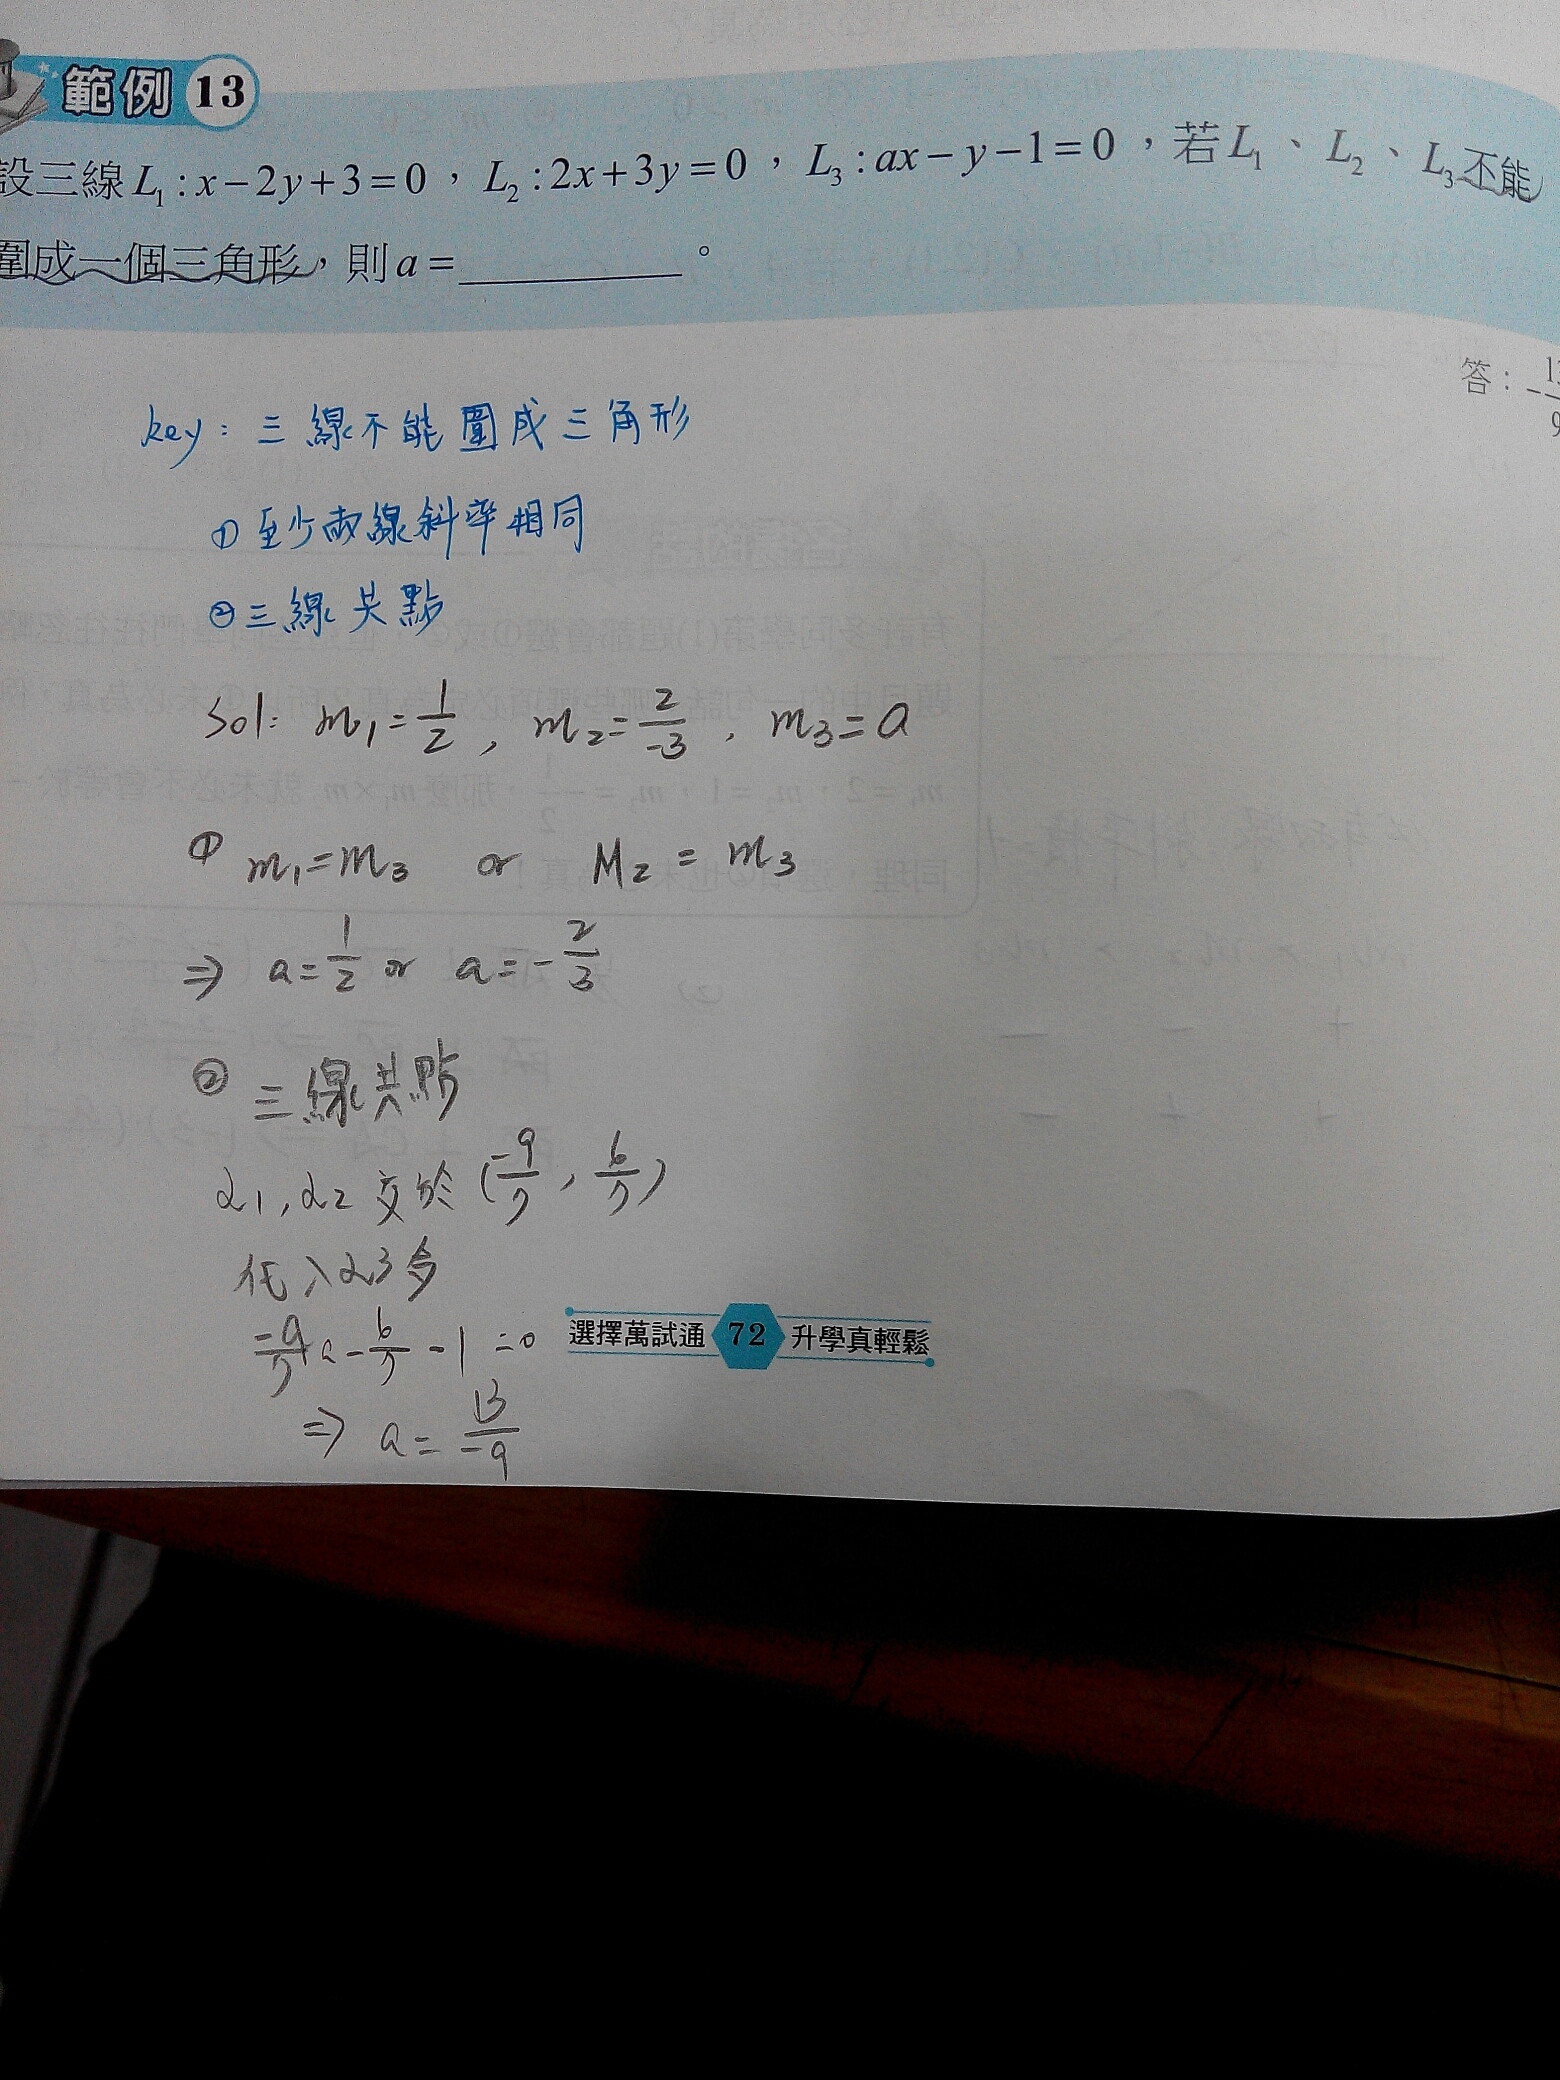 範例 13
設三線 L₁ : x − 2y + 3 = 0 ， L₂ : 2x + 3y = 0 ， L₃ : ax − y − 1 = 0 ，若 L₁ 、 L₂ 、 L₃ 不能
圍成一個三角形，則 a = ________ 。
答：−13/9
key : 三線不能圍成三角形
① 至少兩線斜率相同
② 三線共點
Sol: m₁ = 1/2 , m₂ = 2/-3 , m₃ = a
① m₁ = m₃ or M₂ = m₃
⇒ a = 1/2 or a = -2/3
② 三線共點
L1, L2 交於 (-9/7, 6/7)
代入L3令
-9/7 a - 6/7 - 1 = 0
⇒ a = 13/-9
選擇萬試通 72 升學真輕鬆